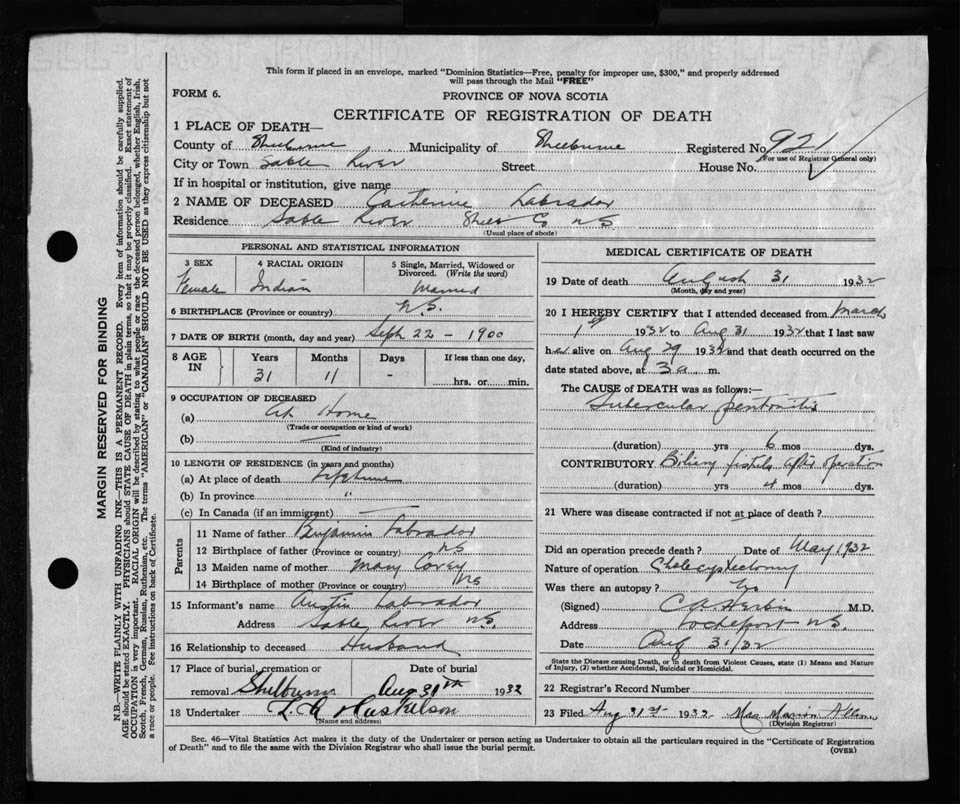 This form if placed in an envelope, marked "Dominion Statistics—Free, penalty for improper use, $300," and properly addressed
will pass through the Mail "FREE"
FORM 6.
PROVINCE OF NOVA SCOTIA
CERTIFICATE OF REGISTRATION OF DEATH
1 PLACE OF DEATH—
County of Shelburne Municipality of Shelburne Registered No. 921
(For use of Registrar General only)
City or Town Sable River Street House No.
If in hospital or institution, give name
2 NAME OF DECEASED Catherine Labrador
Residence Sable River Shelb Co NS
(Usual place of abode)
PERSONAL AND STATISTICAL INFORMATION
3 SEX 4 RACIAL ORIGIN 5 Single, Married, Widowed or
Divorced. (Write the word)
Female Indian Married
6 BIRTHPLACE (Province or country) N.S.
7 DATE OF BIRTH (month, day and year) Sept 22 - 1900
8 AGE IN Years Months Days If less than one day,
31 11 - hrs. or min.
9 OCCUPATION OF DECEASED
(a) At Home
(Trade or occupation or kind of work)
(b) —
(Kind of industry)
10 LENGTH OF RESIDENCE (in years and months)
(a) At place of death Lifetime
(b) In province "
(c) In Canada (if an immigrant) —
Parents
11 Name of father Benjamin Labrador
12 Birthplace of father (Province or country) NS
13 Maiden name of mother Mary Covey
14 Birthplace of mother (Province or country) NS
15 Informant's name Austin Labrador
Address Sable River NS.
16 Relationship to deceased Husband
17 Place of burial, cremation or Date of burial
removal Shelburne Aug 31th 1932
18 Undertaker
(Name and address)
MEDICAL CERTIFICATE OF DEATH
19 Date of death August 31 1932
(Month, day and year)
20 I HEREBY CERTIFY that I attended deceased from March
1st 1932 to Aug 31 1932 that I last saw
her alive on Aug 29 1932 and that death occurred on the
date stated above, at 3 a m.
The CAUSE of DEATH was as follows:—
Tubercular peritonitis
(duration) yrs 6 mos dys.
CONTRIBUTORY Biliary fistula after operation
(duration) yrs 4 mos dys.
21 Where was disease contracted if not at place of death?
Did an operation precede death? Date of May 1932
Nature of operation Cholecystectomy
Was there an autopsy? No
(Signed) C A Herbin M.D.
Address Lockeport NS.
Date Aug 31/32
State the Disease causing Death, or in death from Violent Causes, state (1) Means and Nature
of Injury, (2) whether Accidental, Suicidal or Homicidal.
22 Registrar's Record Number
23 Filed Aug 31st 1932 Mrs Marion
(Division Registrar)
Sec. 46—Vital Statistics Act makes it the duty of the Undertaker or person acting as Undertaker to obtain all the particulars required in the "Certificate of Registration
of Death" and to file the same with the Division Registrar who shall issue the burial permit.
(OVER)
MARGIN RESERVED FOR BINDING
N.B.—WRITE PLAINLY WITH UNFADING INK—THIS IS A PERMANENT RECORD. Every item of information should be carefully supplied.
AGE should be stated EXACTLY. PHYSICIANS should STATE CAUSE OF DEATH in plain terms, so that it may be properly classified. Exact statement of
OCCUPATION is very important. RACIAL ORIGIN will be described by stating to what people or race the deceased person belonged, whether English, Irish,
Scotch, French, German, Russian, Ruthenian, etc. The terms "AMERICAN" or "CANADIAN" SHOULD NOT BE USED as they express citizenship but not
a race or people. See instructions on back of Certificate.